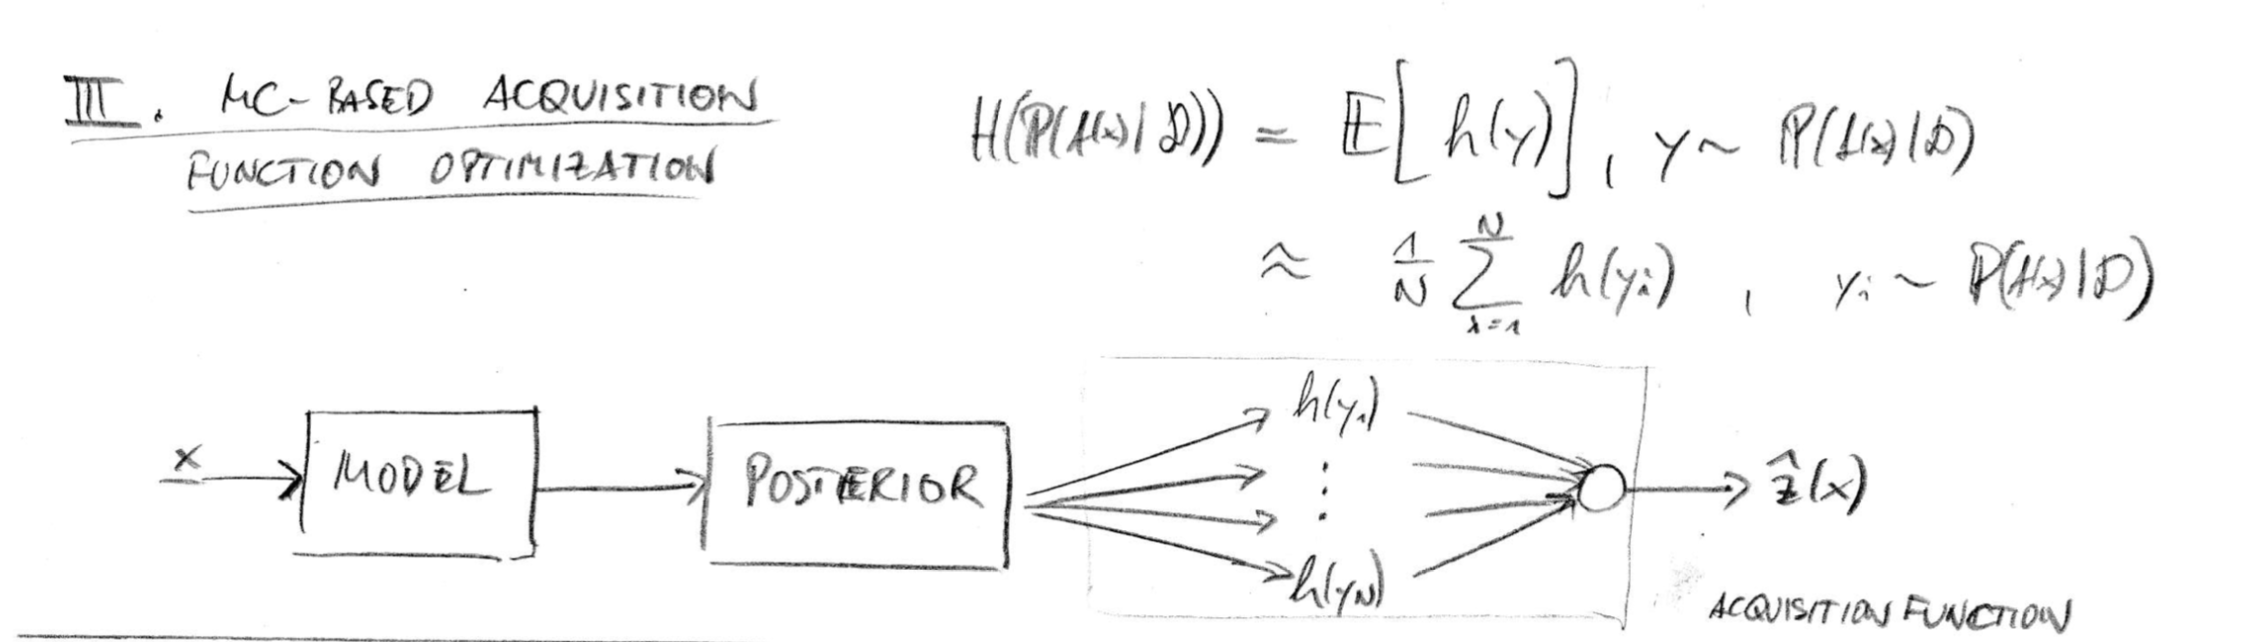 III. MC-BASED ACQUISITION
FUNCTION OPTIMIZATION
H(ℙ(f(x)|𝒟)) = 𝔼[h(y)], y ~ ℙ(f(x)|𝒟)
≈ 1/N ∑_{i=1}^{N} h(y_i), y_i ~ ℙ(f(x)|𝒟)
x
MODEL
POSTERIOR
h(y_1)
⋮
h(y_N)
ẑ(x)
ACQUISITION FUNCTION